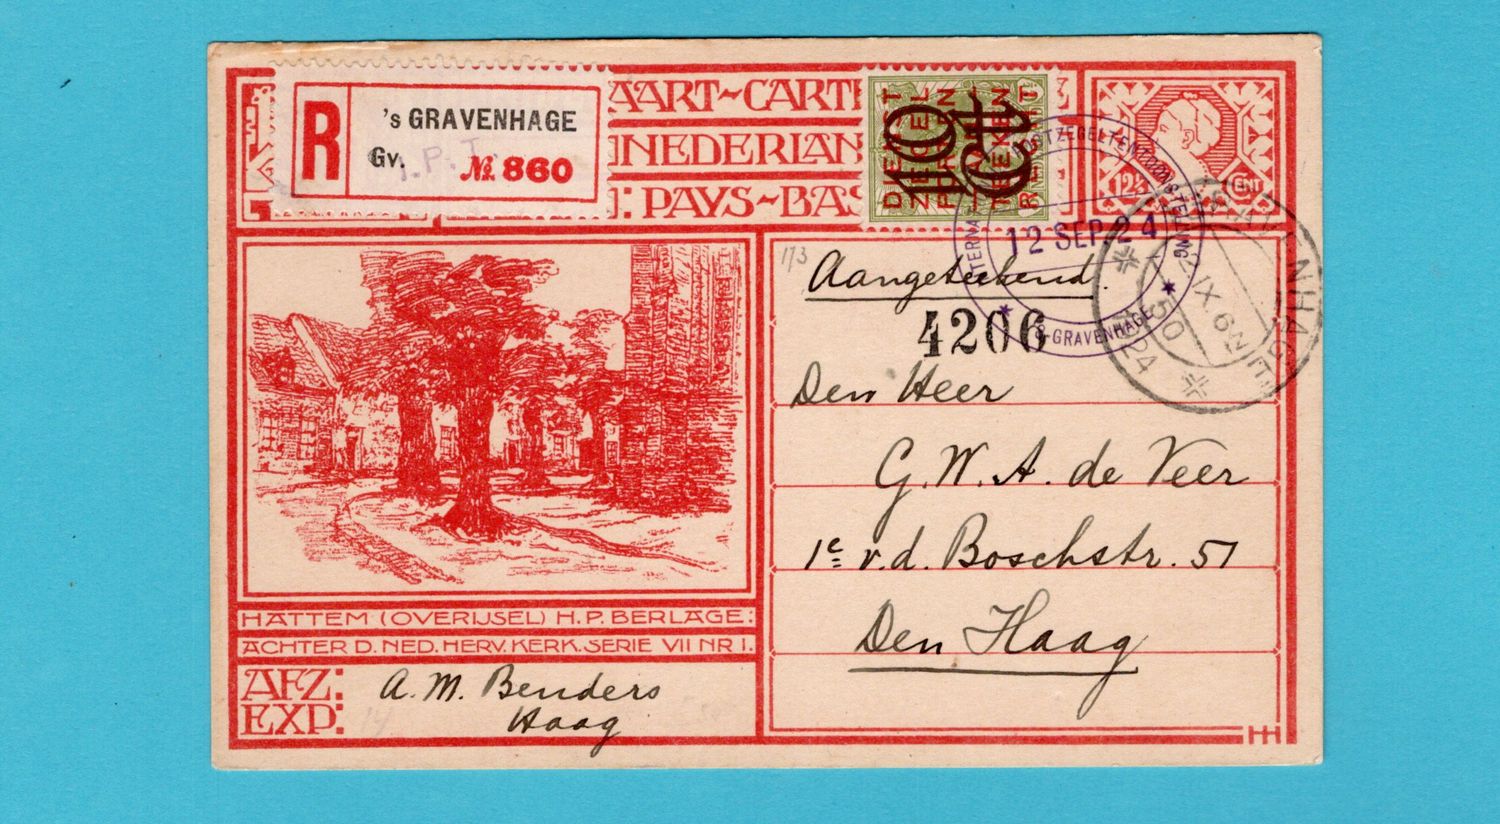 R
's GRAVENHAGE
Gv.
I.P.T.
№ 860
AART~CARTE
NEDERLAN
: PAYS~BAS
10 CT
DEZE
12½ CENT
INTERNAT POSTZEGELTENTOONSTELLING
12 SEP. 24
's-GRAVENHAGE
's GRAVENHAGE
12 IX 6 N
1924
173
Aangetekend.
4206
Den Heer
G. W. A. de Veer
1e v. d. Boschstr. 51
Den Haag
HATTEM (OVERIJSEL) H.P. BERLAGE:
ACHTER D. NED. HERV. KERK. SERIE VII NR 1.
AFZ:
EXP:
A. M. Benders
Haag
HH